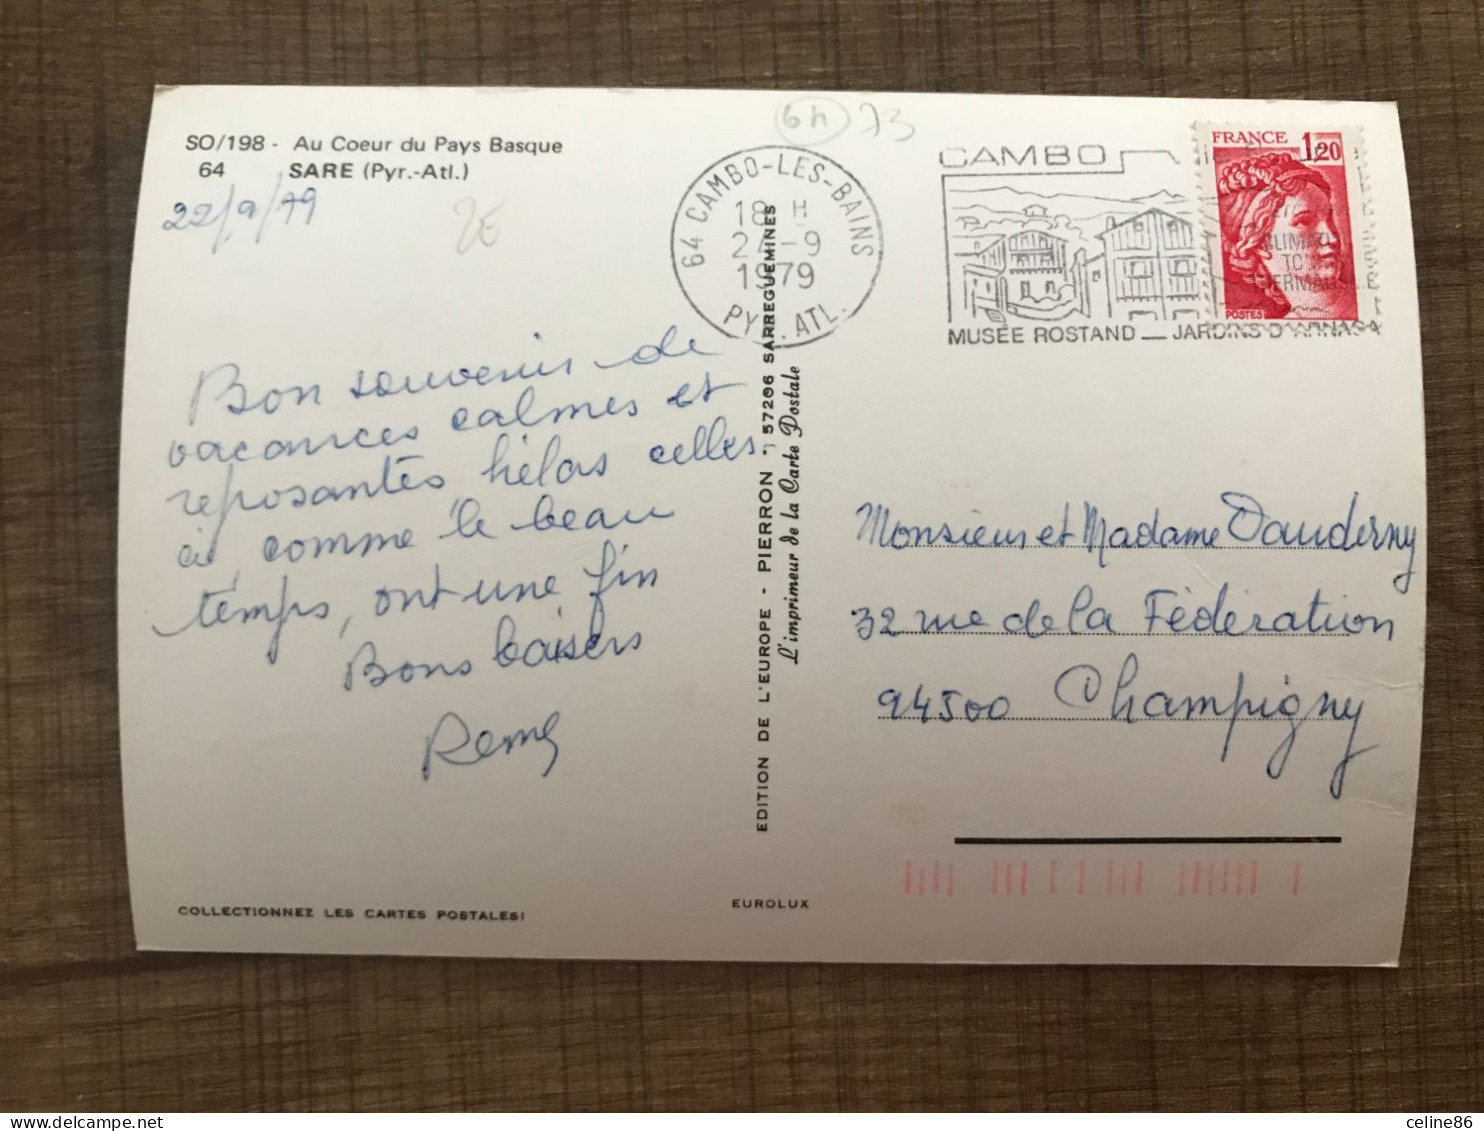 SO/198 - Au Coeur du Pays Basque
64 SARE (Pyr.-Atl.)
22/9/79
2€
64 73
64 CAMBO-LES-BAINS
18 H
-9
1979
PYR. ATL.
CAMBO
MUSÉE ROSTAND — JARDINS D'ARNAGA
FRANCE 1,20
POSTES
Bon souvenir de
vacances calmes et
reposantes hélas celles
ci, comme le beau
temps, ont une fin
Bons baisers
EDITION DE L'EUROPE - PIERRON - 57206 SARREGUEMINES
L'imprimeur de la Carte Postale
Monsieur et Madame Dauderny
32 rue de la Fédération
94500 Champigny
COLLECTIONNEZ LES CARTES POSTALES!
EUROLUX
delcampe.net
celine86